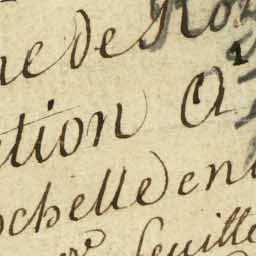 ne de Ro
ction A
ochelle en
feuille